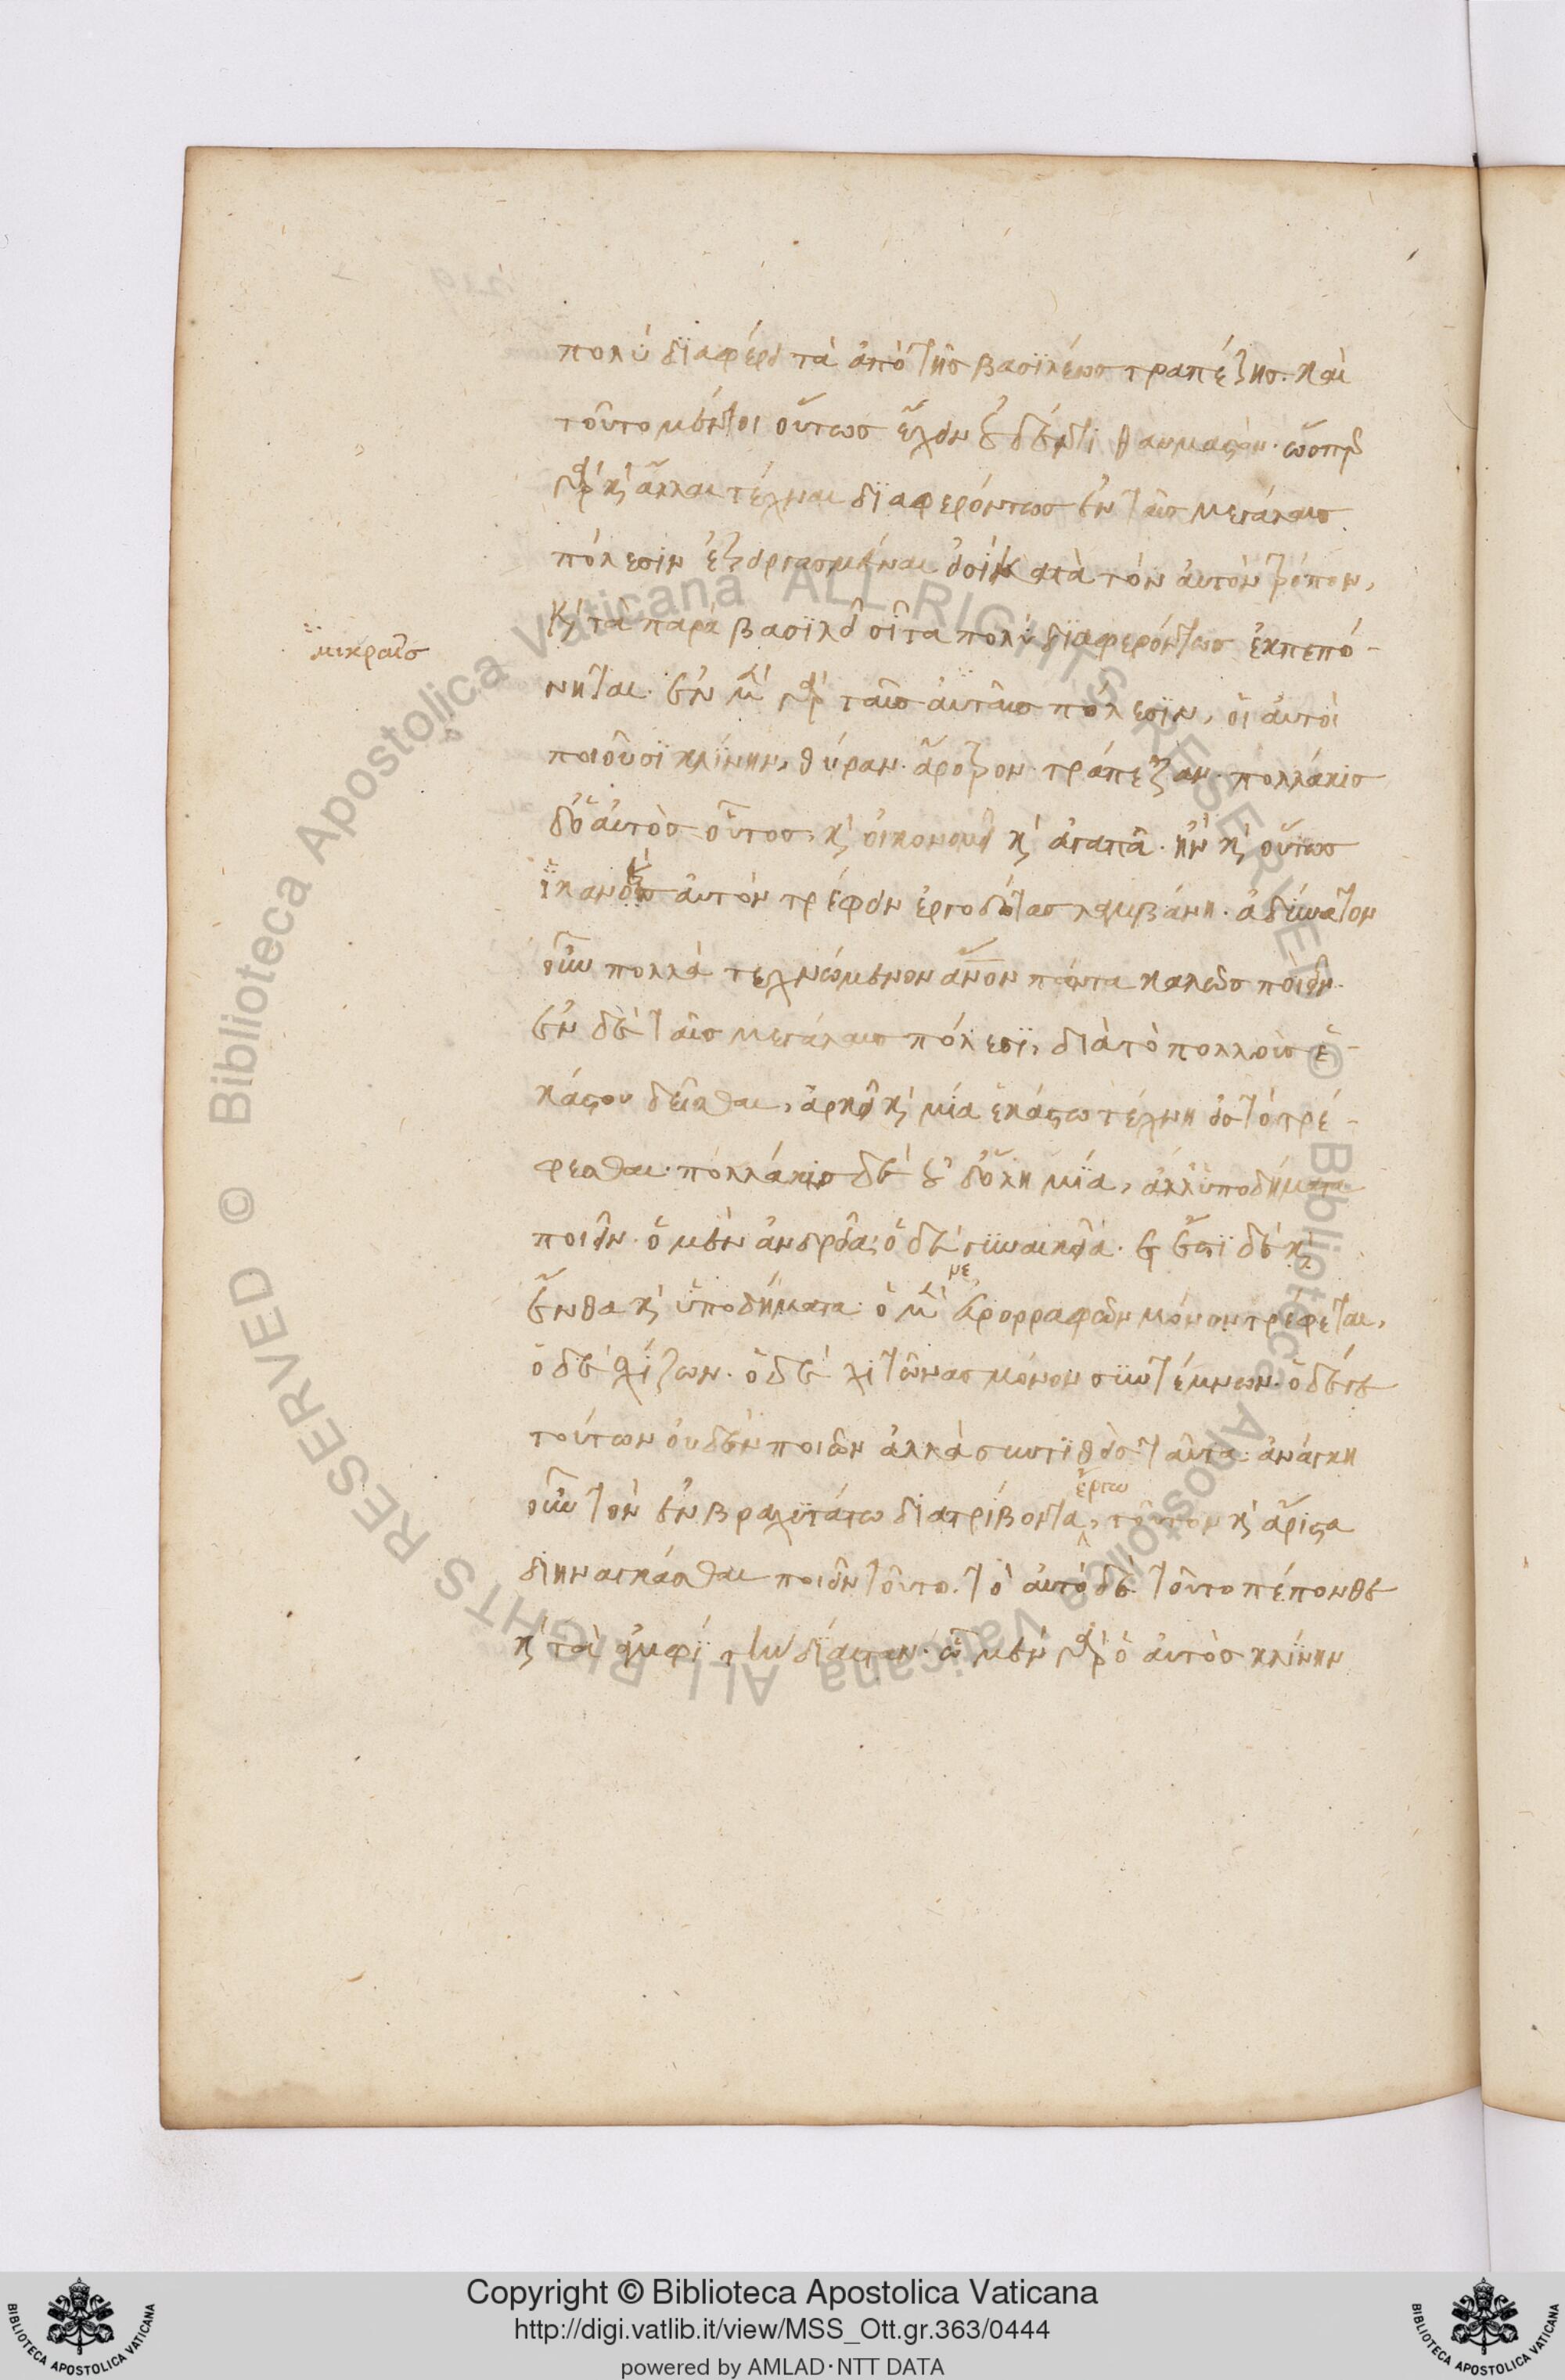 πολὺ διαφέρει τὰ ἀπὸ τῆς βασιλέως τραπέζης. καὶ
τοῦτο μέντοι οὕτως ἔχειν οὐδέν τι θαυμαστόν. ὥσπερ
γὰρ καὶ ἄλλαι τέχναι διαφερόντως ἐν ταῖς μεγάλαις
πόλεσιν ἐξειργασμέναι εἰσὶ κατὰ τὸν αὐτὸν τρόπον,
καὶ τὰ παρὰ βασιλεῖ σῖτα πολὺ διαφερόντως ἐκπεπό-
μικραῖς
νηται. ἐν μὲν γὰρ ταῖς αὐταῖς πόλεσιν, οἱ αὐτοὶ
ποιοῦσι κλίνην, θύραν. ἄροτρον. τράπεζαν. πολλάκις
δ' ὁ αὐτὸς οὗτος, καὶ οἰκονομεῖ καὶ ἀγαπᾷ. ἢν καὶ οὕτως
ἱκανοὺς αὐτὸν τρέφειν ἐργοδότας λαμβάνη. ἀδύνατον
οὖν πολλὰ τεχνώμενον ἄνον πάντα καλῶς ποιεῖν.
ἐν δὲ ταῖς μεγάλαις πόλεσι, διὰ τὸ πολλοὺς ἑ-
κάστου δεῖσθαι, ἀρκεῖ καὶ μία ἑκάστω τέχνη εἰς τὸ τρέ-
φεσθαι. πολλάκις δὲ οὐδ' ὅλη μία, ἀλλ' ὑποδήματα
ποιεῖν. ὁ μὲν ἀνδρεῖα, ὁ δὲ γυναικεῖα. ἔστι δὲ καὶ
ἔνθα καὶ ὑποδήματα ὁ μὲν νευρορραφῶν μόνον τρέφεται,
ὁ δὲ σχίζων. ὁ δὲ χιτῶνας μόνον συντέμνων. ὁ δέ γε
τούτων οὐδὲν ποιῶν ἀλλὰ συντιθεὶς ταῦτα. ἀνάγκη
οὖν τὸν ἐν βραχυτάτω διατρίβοντα ἔργω, τοῦτον καὶ ἄριστα
διηναγκάσθαι ποιεῖν τοῦτο. τὸ αὐτὸ δὲ τοῦτο πέπονθε
καὶ τὰ ἀμφὶ τὴν δίαιταν. ὧ μὲν γὰρ ὁ αὐτὸς κλίνην
Copyright © Biblioteca Apostolica Vaticana
http://digi.vatlib.it/view/MSS_Ott.gr.363/0444
powered by AMLAD·NTT DATA